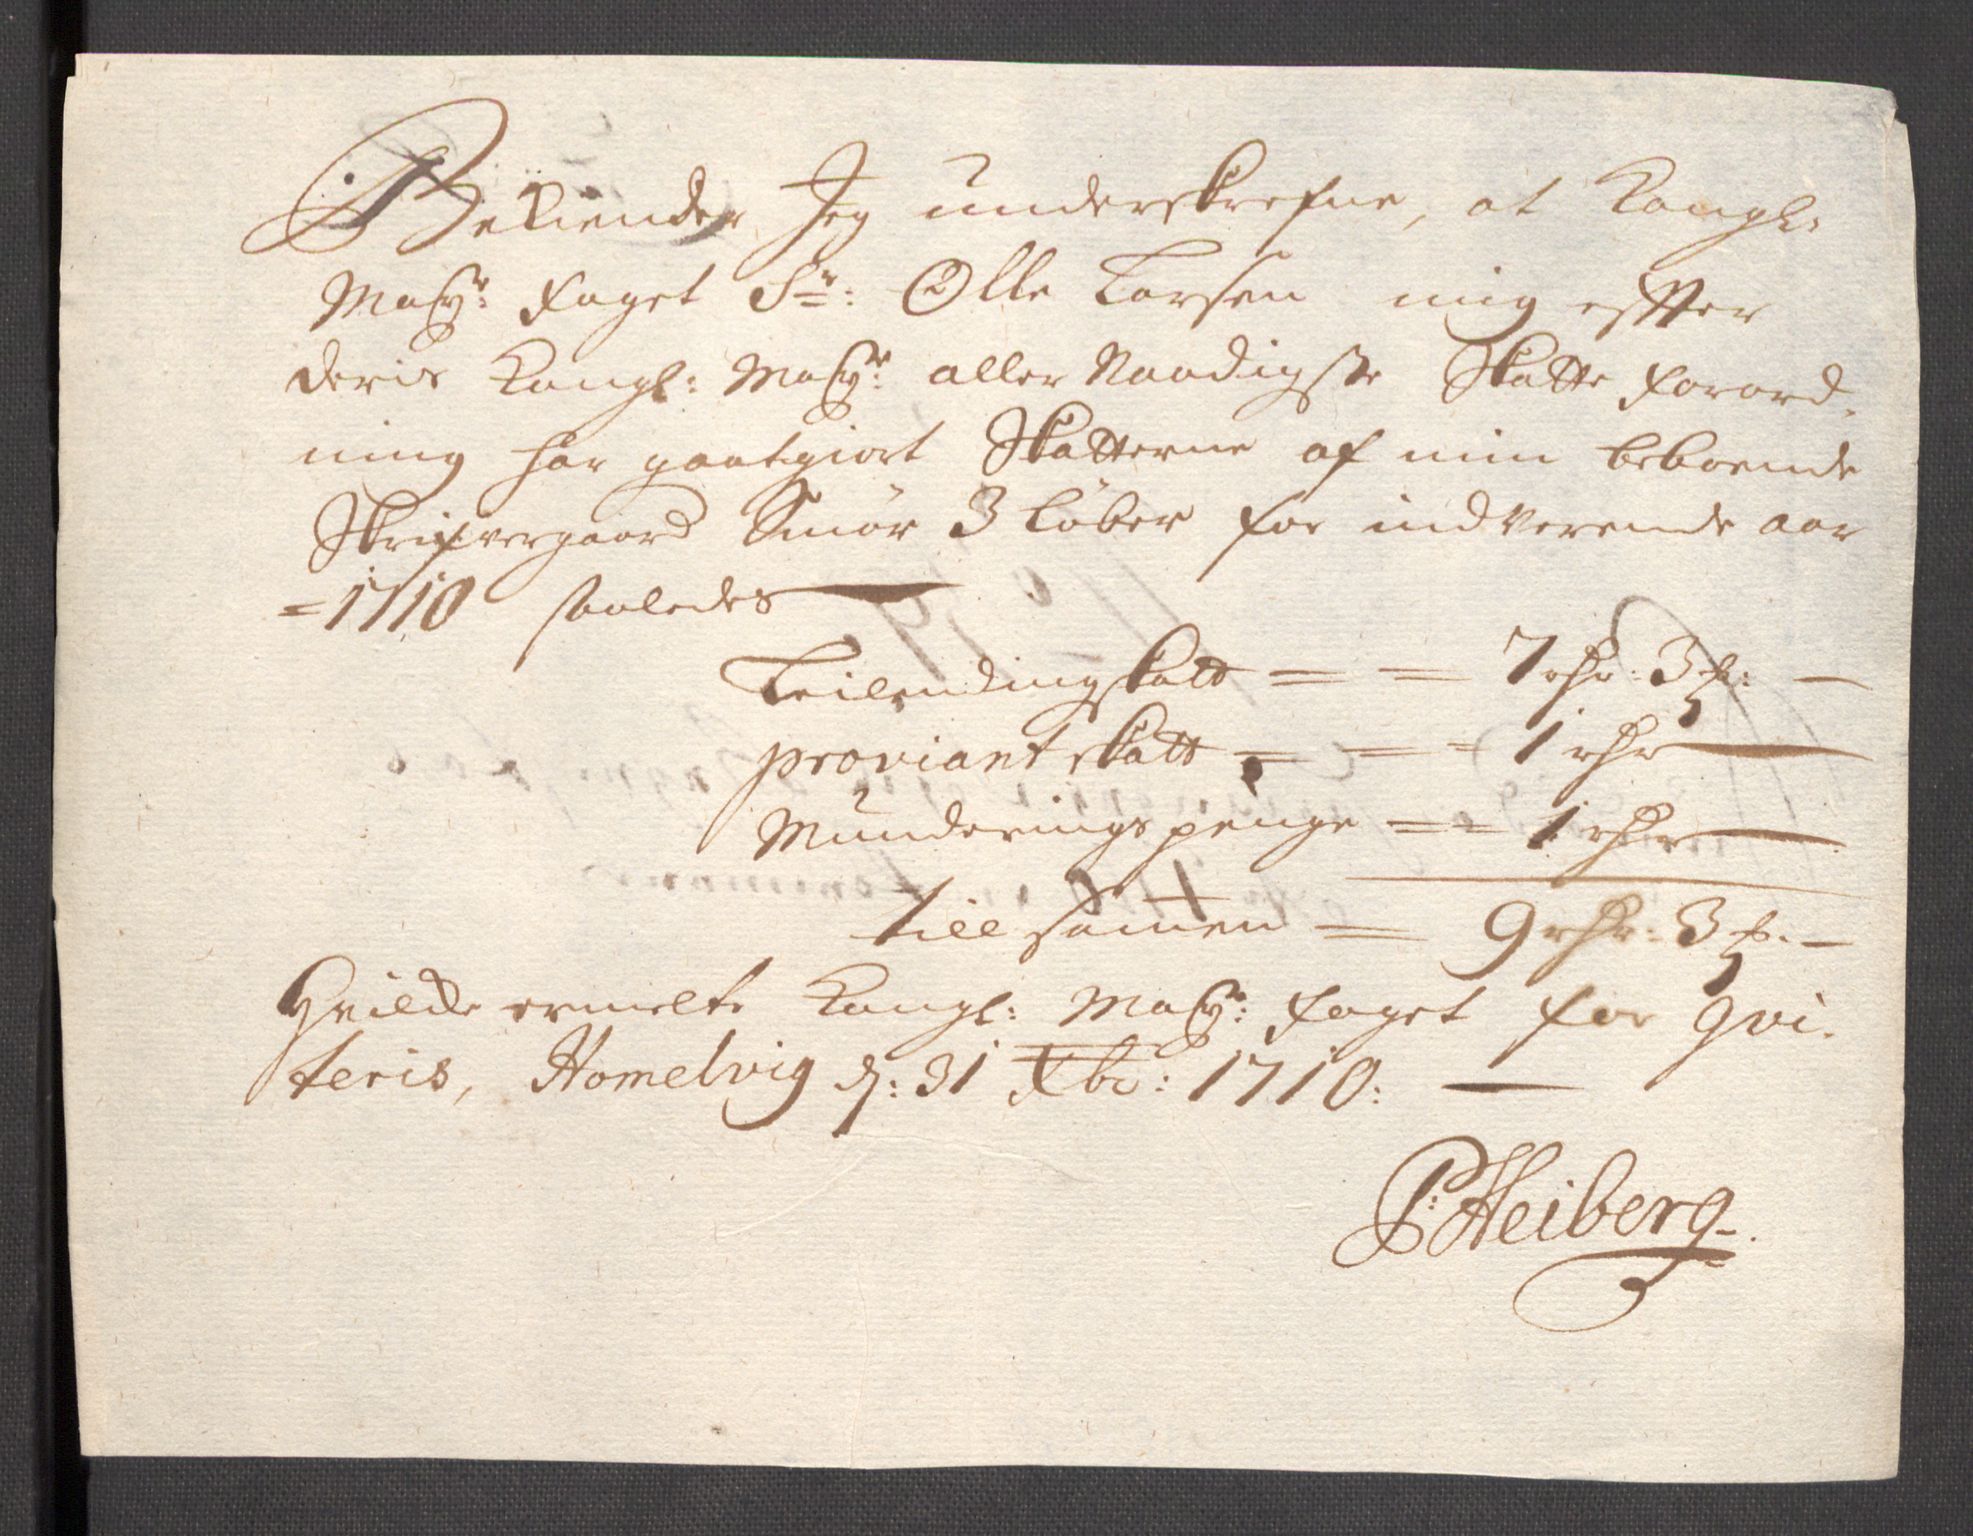 Bekiender Jeg underskrefne, at Kongl:
May:ts: Foget Sr: Olle Larsen mig effter
deris Kongl: May:ts: aller Naadigste Skatte forord-
ning har godtgiort Skatterne af min beboende
Skrifvergaard Smør 3 Løber for indverende aar
=1710 saaledes
Leilendingskatt = = 7 rdr: 3 ß: -
proviantskatt = = = 1 rdr
Munderings penge = = 1 rdr
till samen = 9 rdr: 3 ß. -
Hvilcke ermelte Kongl: May:ts: foget for qvi-
teris, Homelvig d: 31 Xbr: 1710:
P: Heiberg